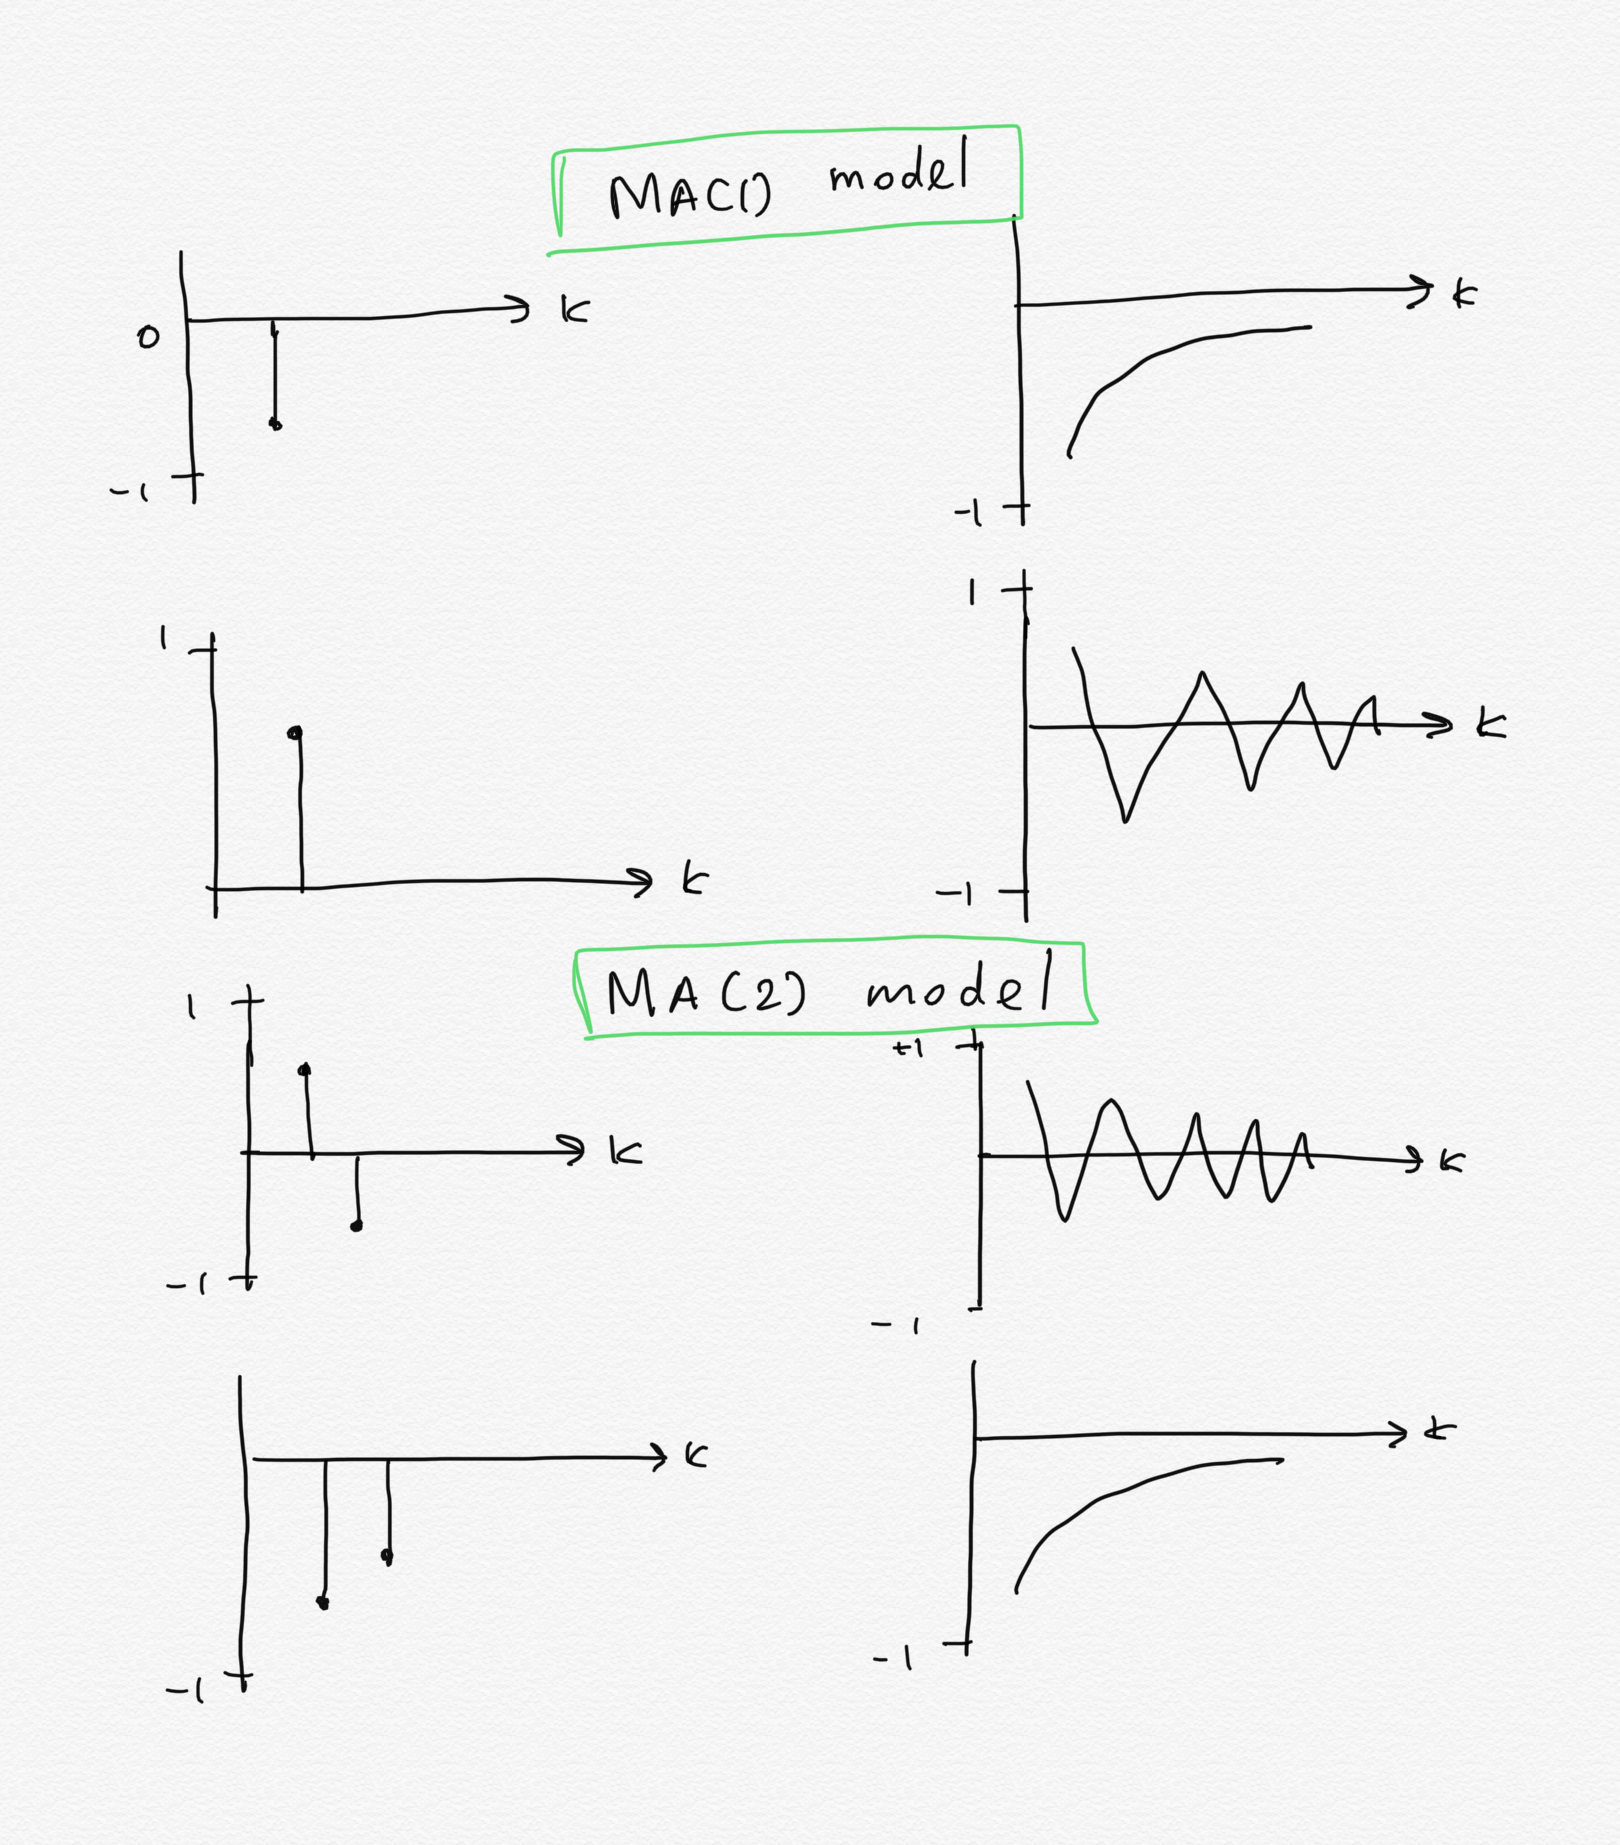 MA(1) model
k
0
-1
k
-1
1
k
1
k
-1
MA(2) model
1
k
-1
+1
k
-1
k
-1
k
-1